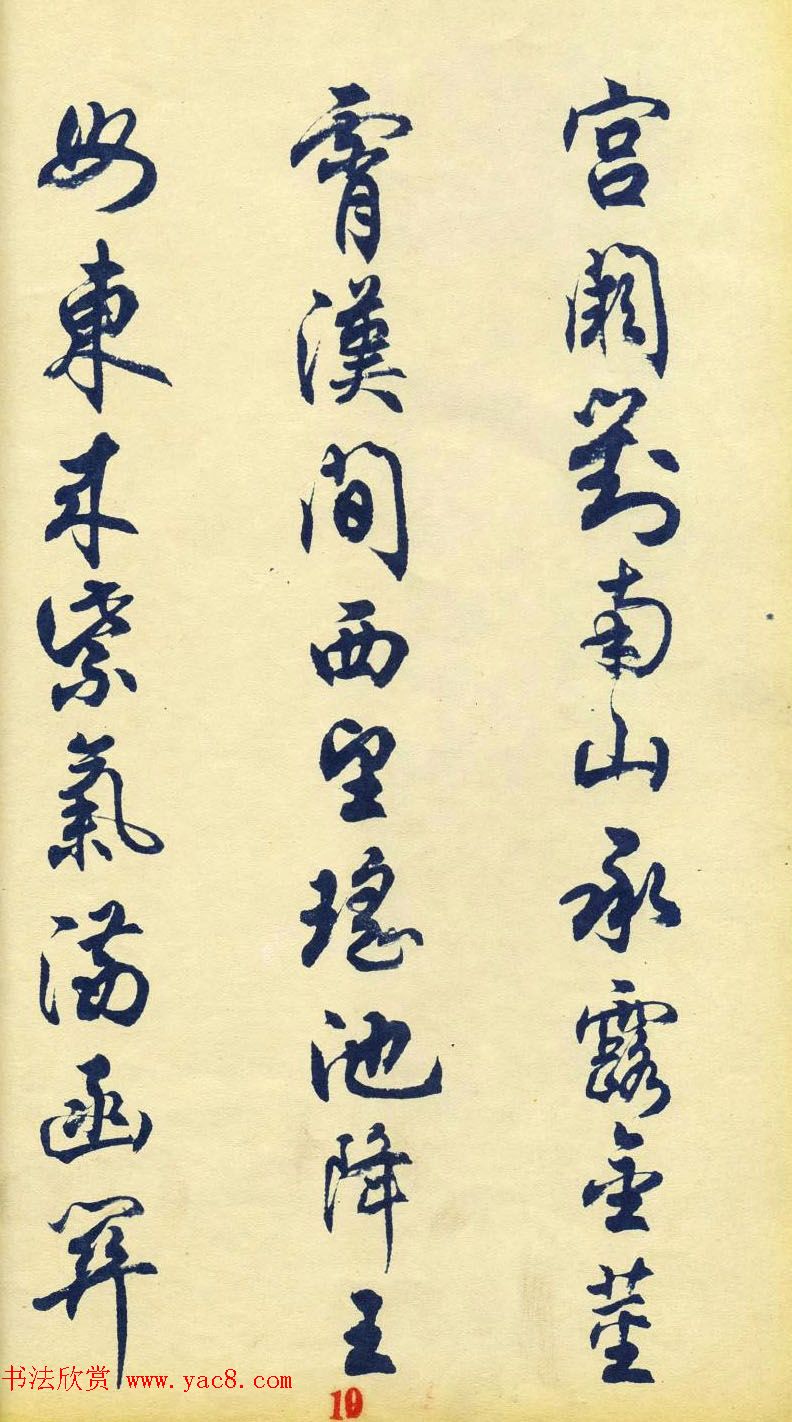 宫闕對南山承露金莖
霄漢間西望瑤池降王
母東来紫氣滿函關
书法欣赏 www.yac8.com
19